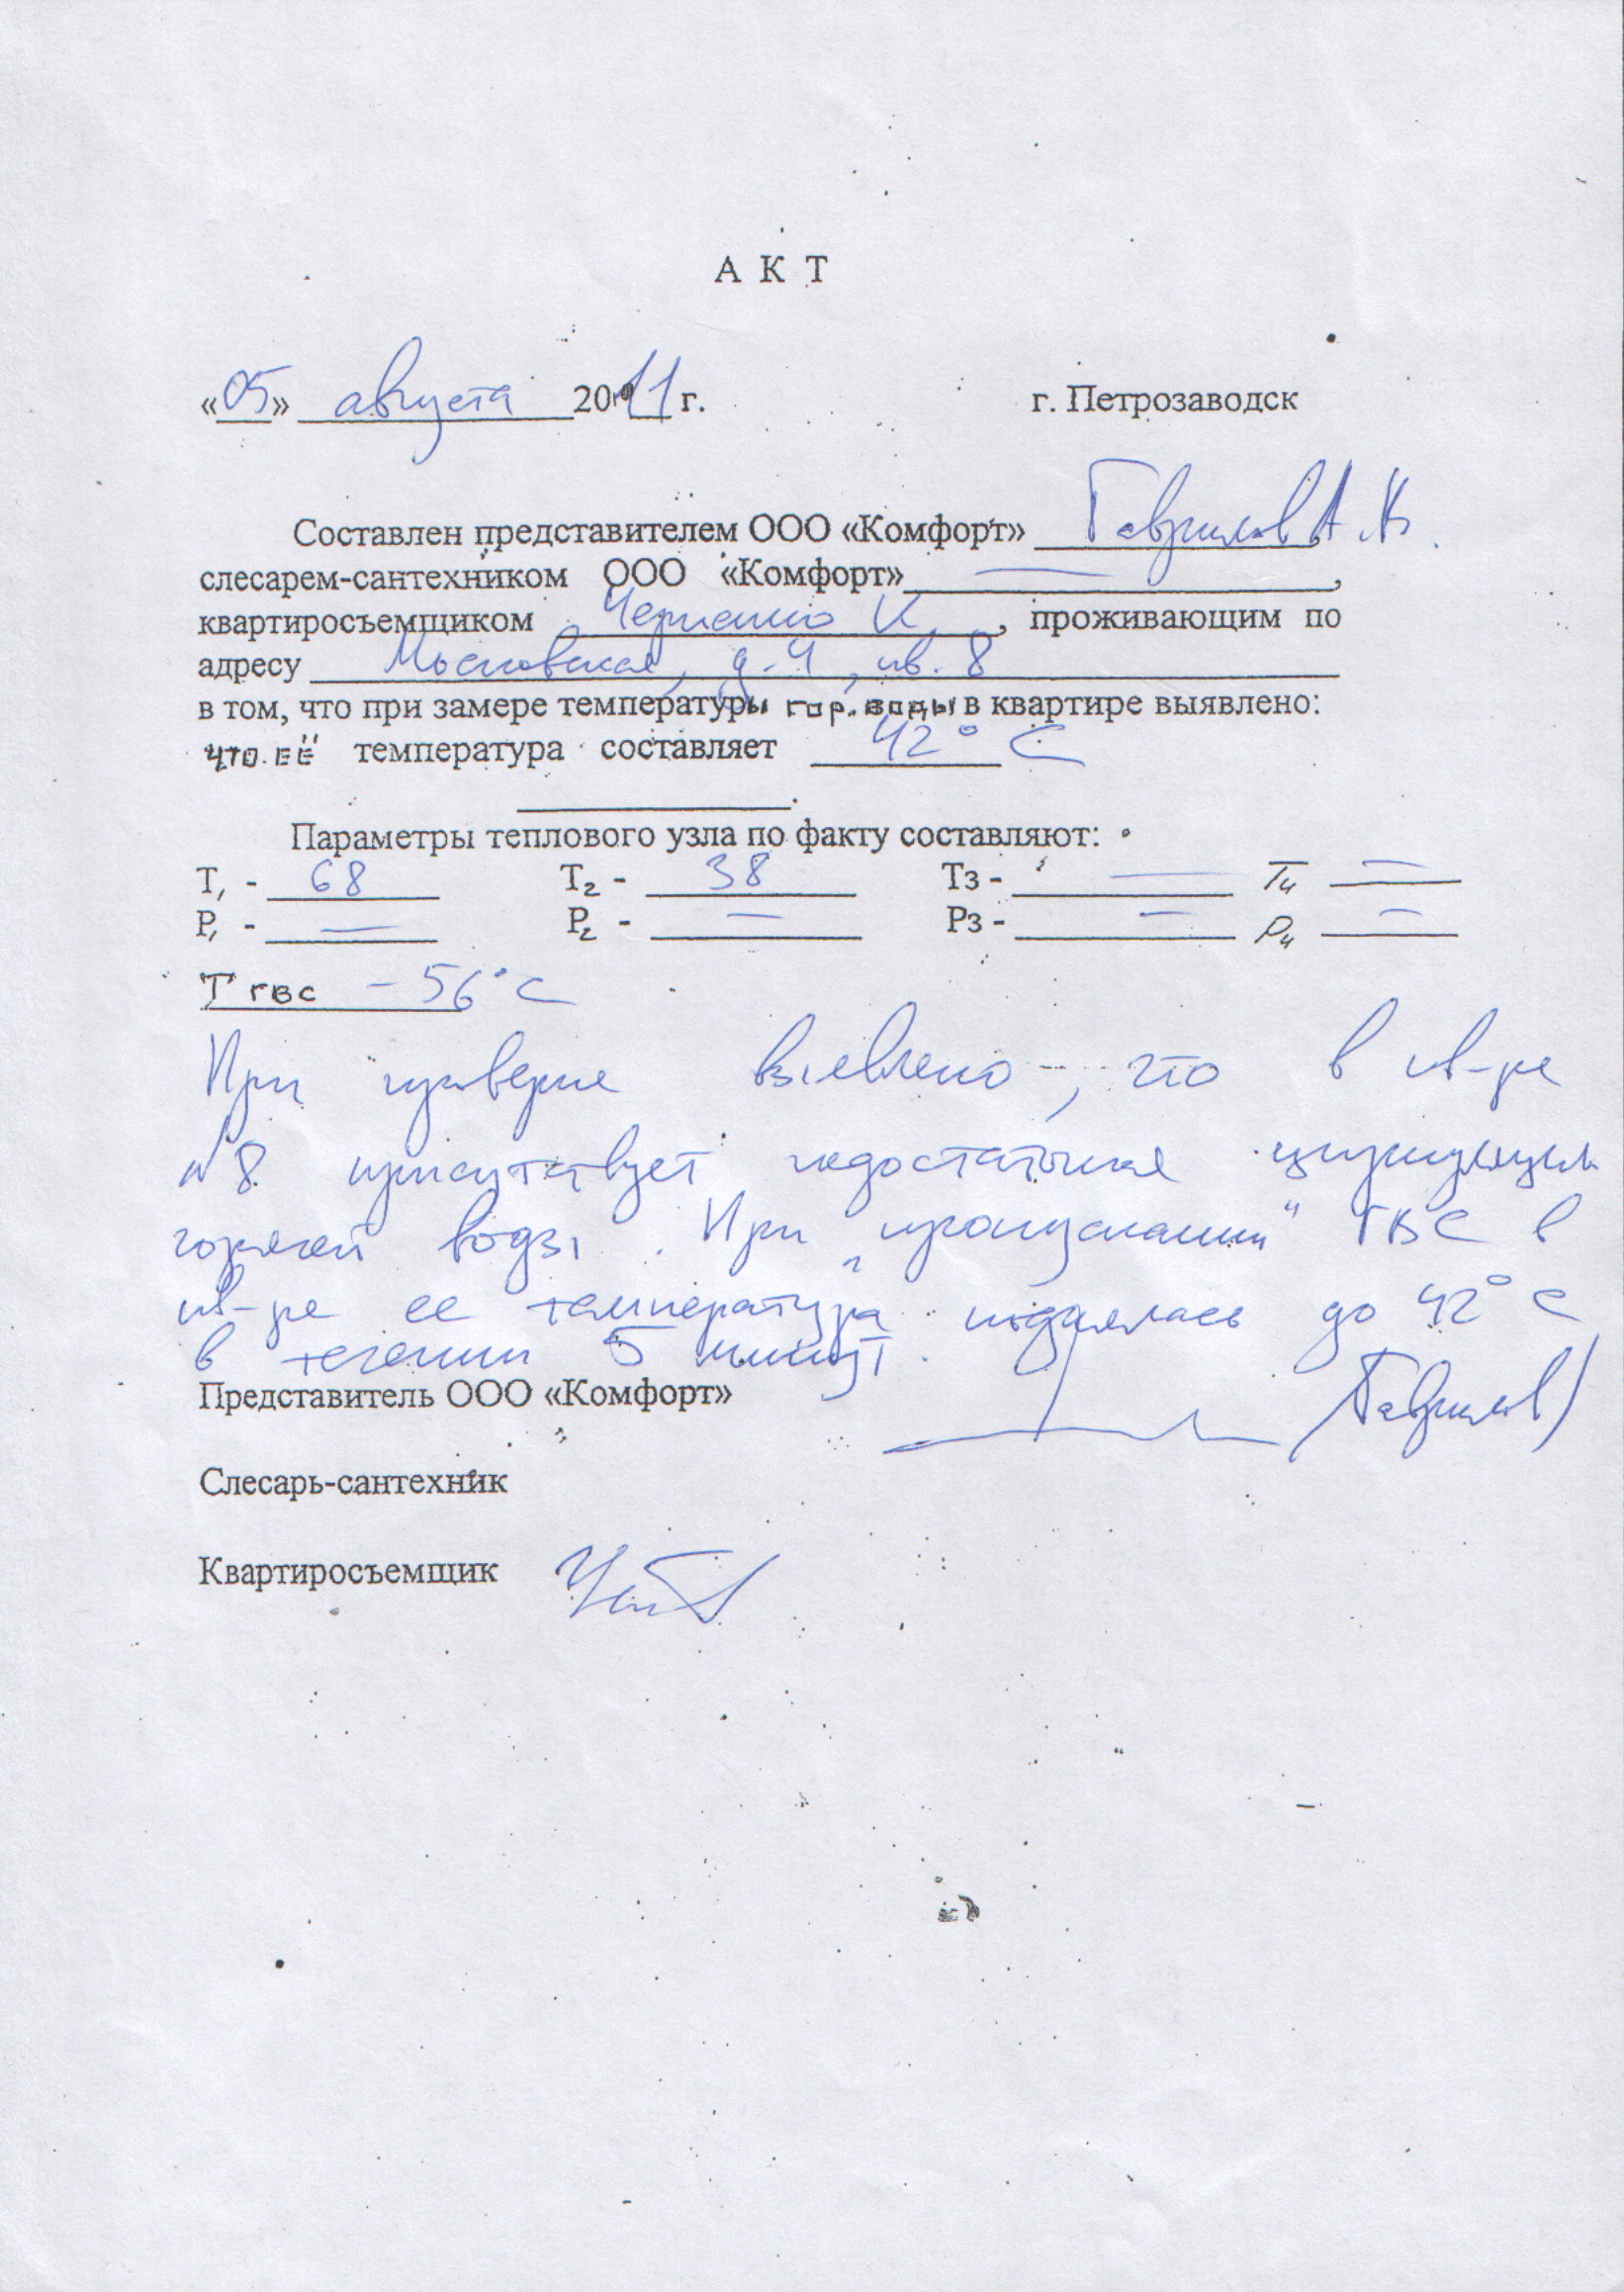 А К Т
«05» августа 2011 г. г. Петрозаводск
Составлен представителем ООО «Комфорт» Гаврилов А.
слесарем-сантехником ООО «Комфорт» — ,
квартиросъемщиком К. , проживающим по
адресу Московская, д. 4, кв. 8
в том, что при замере температуры гор. воды в квартире выявлено:
что её температура составляет 42° С
.
Параметры теплового узла по факту составляют:
Т1 - 68 Т2 - 38 Т3 - — Т4 —
Р1 - — Р2 - — Р3 - — Р4 —
Т гвс - 56°С
При проверке выявлено, что в кв-ре
№8 присутствует недостаточная циркуляция
горячей воды. При „пропускании“ ГВС в
кв-ре ее температура поднялась до 42°С
в течении 5 минут.
Представитель ООО «Комфорт» (Гаврилов)
Слесарь-сантехник
Квартиросъемщик